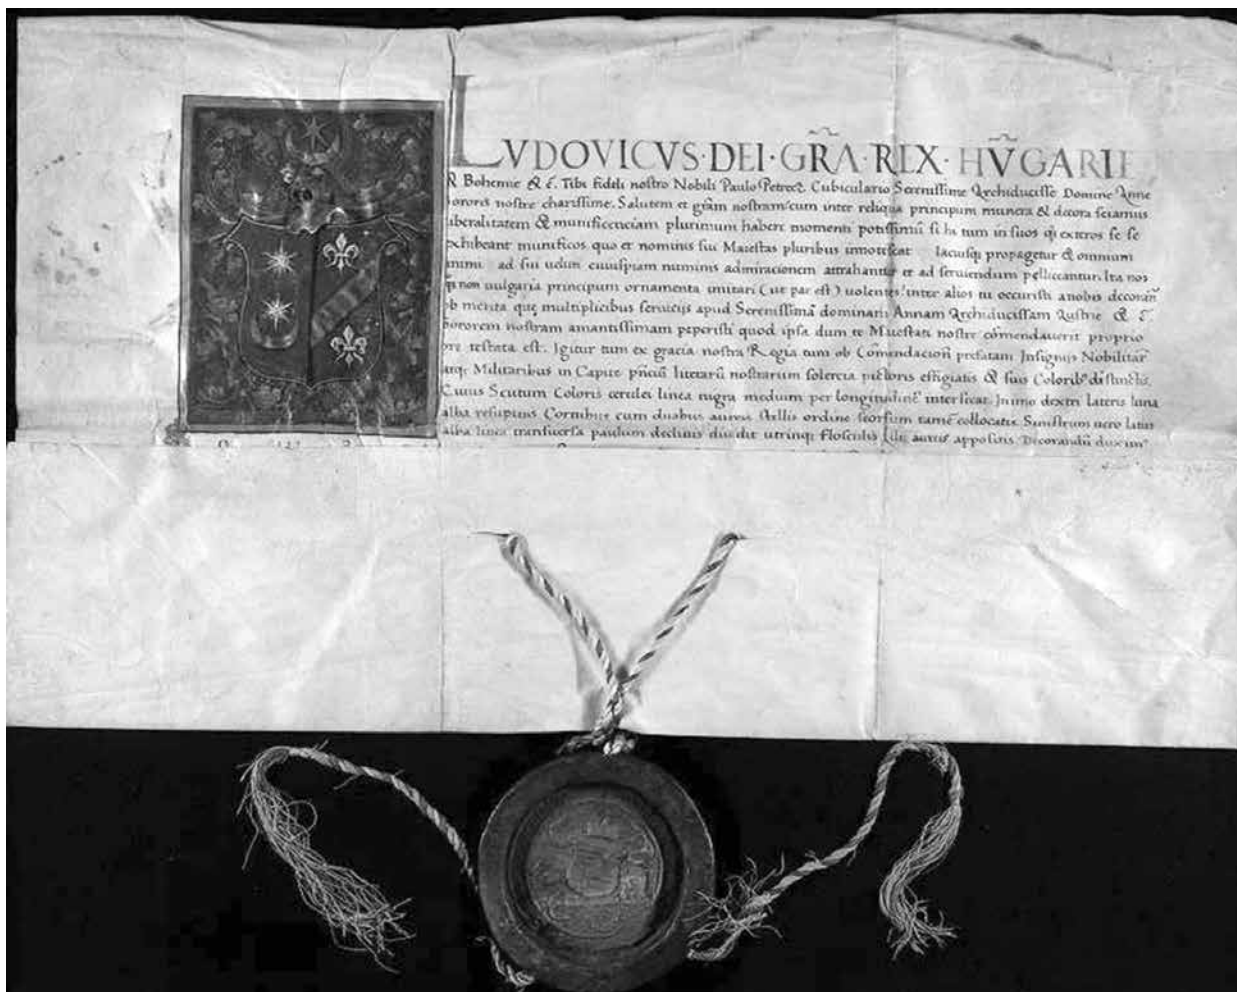 LVDOVICVS·DEI·GR̃A·REX·HV̄GARIE
Bohemie & c̃. Tibi fideli nostro Nobili Paulo Petrecz Cubiculario Serenissime Archiducisse Domine Anne
sororis nostre charissime. Salutem et grãm nostram: cum inter reliqua principum munera & decora sciamus
liberalitatem & munificenciam plurimum habere momenti potissimũ si in tum in suos qũ exteros se se
exhibeant munificos quo et nominis sui Maiestas pluribus innotescat laciusq; propagetur & omnium
animi ad sui uelut cuiuspiam numinis admiracionem attrahantur et ad seruiendum pelliceantur. Ita nos
non uulgaria principum ornamenta imitari (ut par est) uolentes: inter alios tu occuristi a nobis decoran̄
ob merita que multiplicibus seruicijs apud Serenissimã dominam Annam Archiducissam Austrie & c̃.
sororem nostram amantissimam peperisti quod ipsa dum te Maiestati nostre cõmendauerit proprio
ore testata est. Igitur tum ex gracia nostra Regia tum ob Cõmendacion̄ prefatam Insignijs Nobilitar̄
atq; Militaribus in Capite pñciũ literarũ nostrarum solercia pictoris effigiatis & suis Colorib9 distinctis.
Cuius Scutum Coloris cerulei linea nigra medium per longitudinē intersecat. In imo dextri lateris luna
alba resupinis Cornibus cum duabus aureis stellis ordine seorsum tamē collocatis. Sinistrum uero latus
alba linea transuersa paulum decliuis diuidit utrinq; flosculis Lilij aureis appositis. Decorandũ duxim9